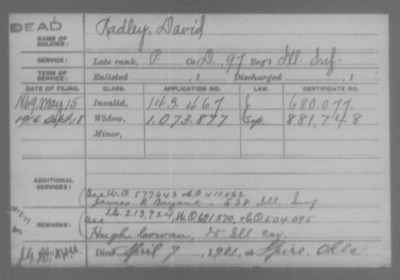 DEAD
NAME OF SOLDIER: Radley, David
SERVICE: Late rank, P. Co. D, 97 Reg't Ill. Inf.
TERM OF SERVICE: Enlisted , 1 Discharged , 1
DATE OF FILING. CLASS. APPLICATION NO. LAW. CERTIFICATE NO.
1869, May 15 Invalid, 143.467 680.077.
1916 Sept. 18 Widow, 1.073.877 881,748
Minor,
ADDITIONAL SERVICES:
See W.O. 577643 411562
James R Bryant - 63d Ill. Inf
REMARKS: See 213,724, W.O. 691,870, 504,095
Hugh Cowan, 15 Ill Cav.
Died April 7, 1901, at Spiro, Okla.